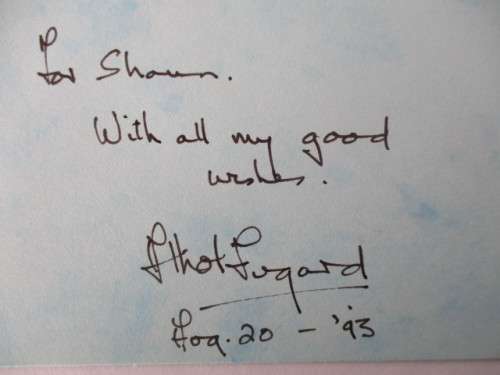 For Shaun.
With all my good
wishes.
Athol Fugard
Aug. 20 - '93